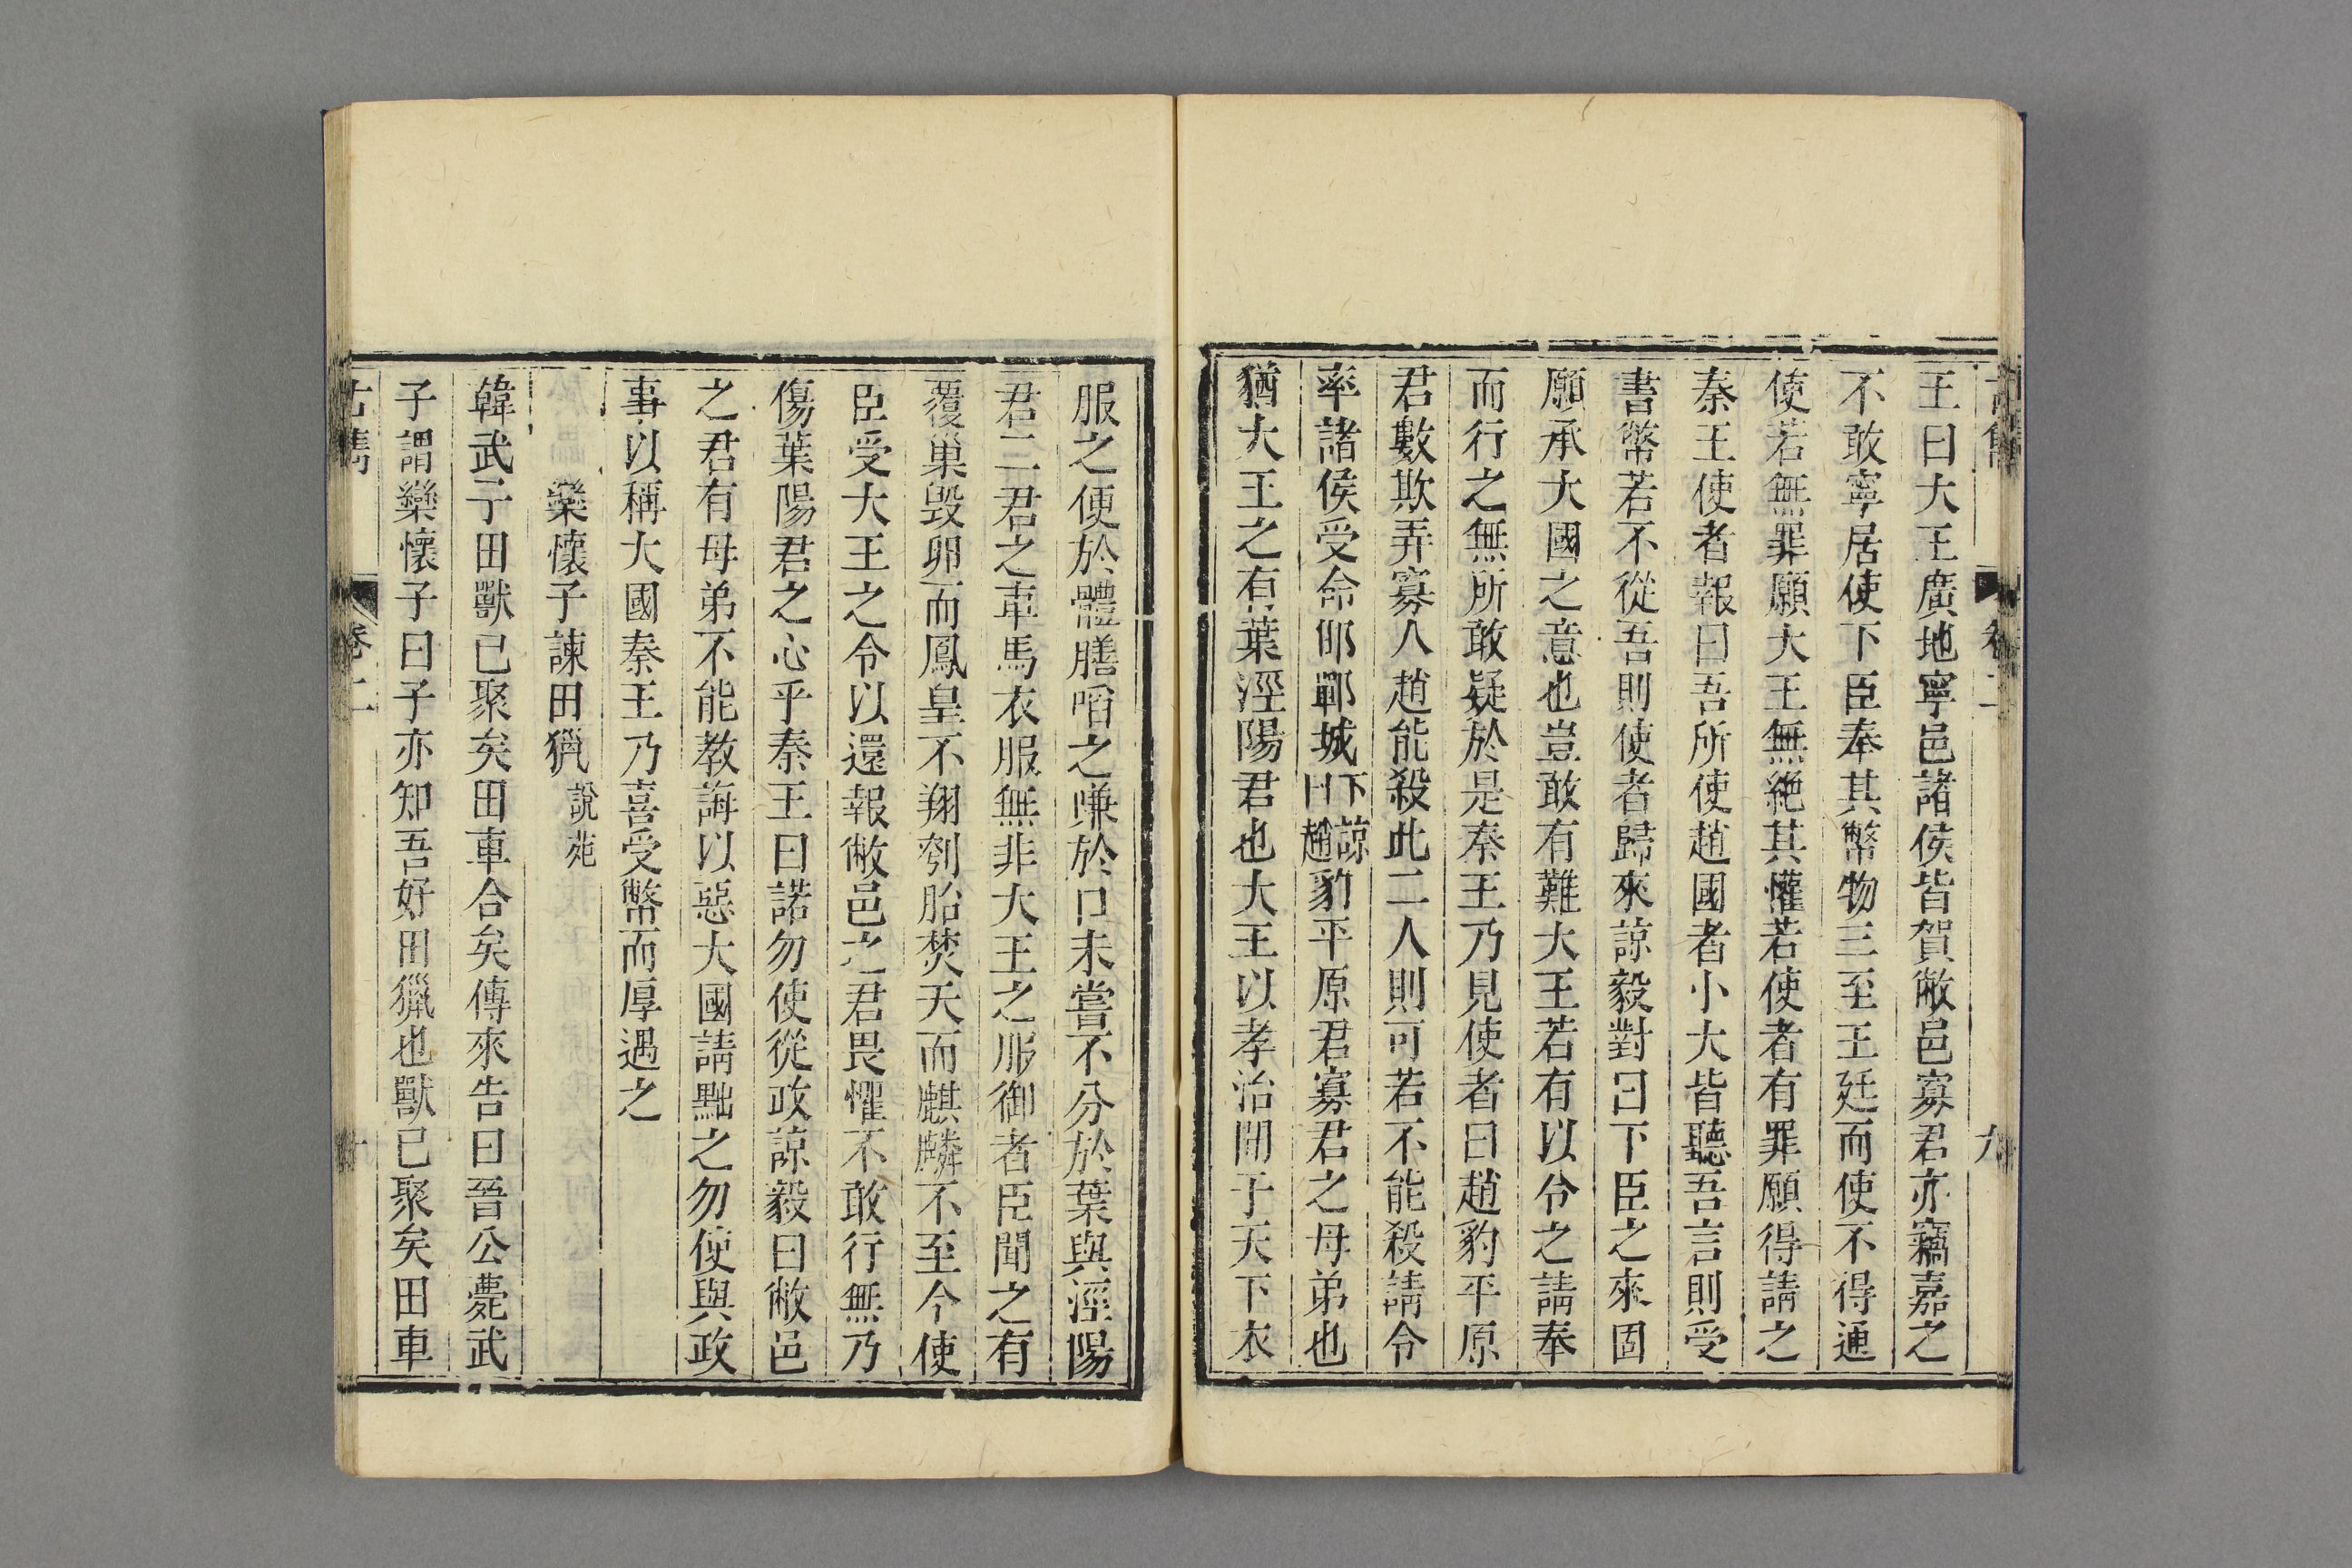 王曰大王廣地寧邑諸侯皆賀敝邑寡君亦竊嘉之
不敢寧居使下臣奉其幣物三至王廷而使不得通
使若無罪願大王無絶其懽若使者有罪願得請之
秦王使者報曰吾所使趙國者小大皆聽吾言則受
書幣若不從吾則使者歸來諒毅對曰下臣之來固
願承大國之意也豈敢有難大王若有以令之請奉
而行之無所敢疑於是秦王乃見使者曰趙豹平原
君數欺弄寡人趙能殺此二人則可若不能殺請令
率諸侯受命邯鄲城下諒曰趙豹平原君寡君之母弟也
猶大王之有葉涇陽君也大王以孝治聞于天下衣
服之便於體膳啗之嗛於口未嘗不分於葉與涇陽
君二君之車馬衣服無非大王之服御者臣聞之有
覆巢毀卵而鳳皇不翔刳胎焚夭而麒麟不至今使
臣受大王之令以還報敝邑之君畏懼不敢行無乃
傷葉陽君之心乎秦王曰諾勿使從政諒毅曰敝邑
之君有母弟不能教誨以惡大國請黜之勿使與政
事以稱大國秦王乃喜受幣而厚遇之
欒懷子諫田獵 說苑
韓武子田獸已聚矣田車合矣傳來告曰晉公薨武
子謂欒懷子曰子亦知吾好田獵也獸已聚矣田車
卷二